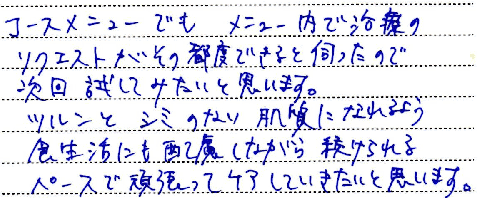 コースメニューでも メニュー内で治療の
リクエストがその都度できると伺ったので
次回試してみたいと思います。
ツルンとシミのない肌質になれるよう
食生活にも配慮しながら続けられる
ペースで頑張ってケアしていきたいと思います。